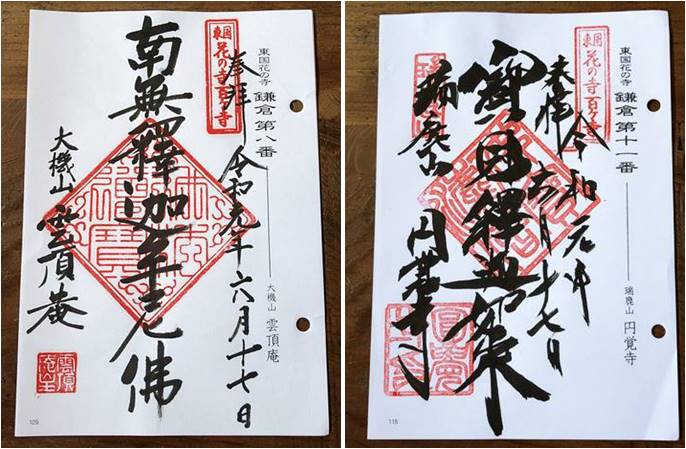 東国花の寺 鎌倉 第八番
大機山 雲頂庵
東国
花の寺百ヶ寺
奉拝
令和元年六月十七日
南無釋迦牟尼佛
大機山 雲頂庵
129
東国花の寺 鎌倉 第十一番
瑞鹿山 円覚寺
東国
花の寺百ヶ寺
奉拝
令和元年
六月十七日
寶冠釋迦如来
瑞鹿山 円覚寺
115